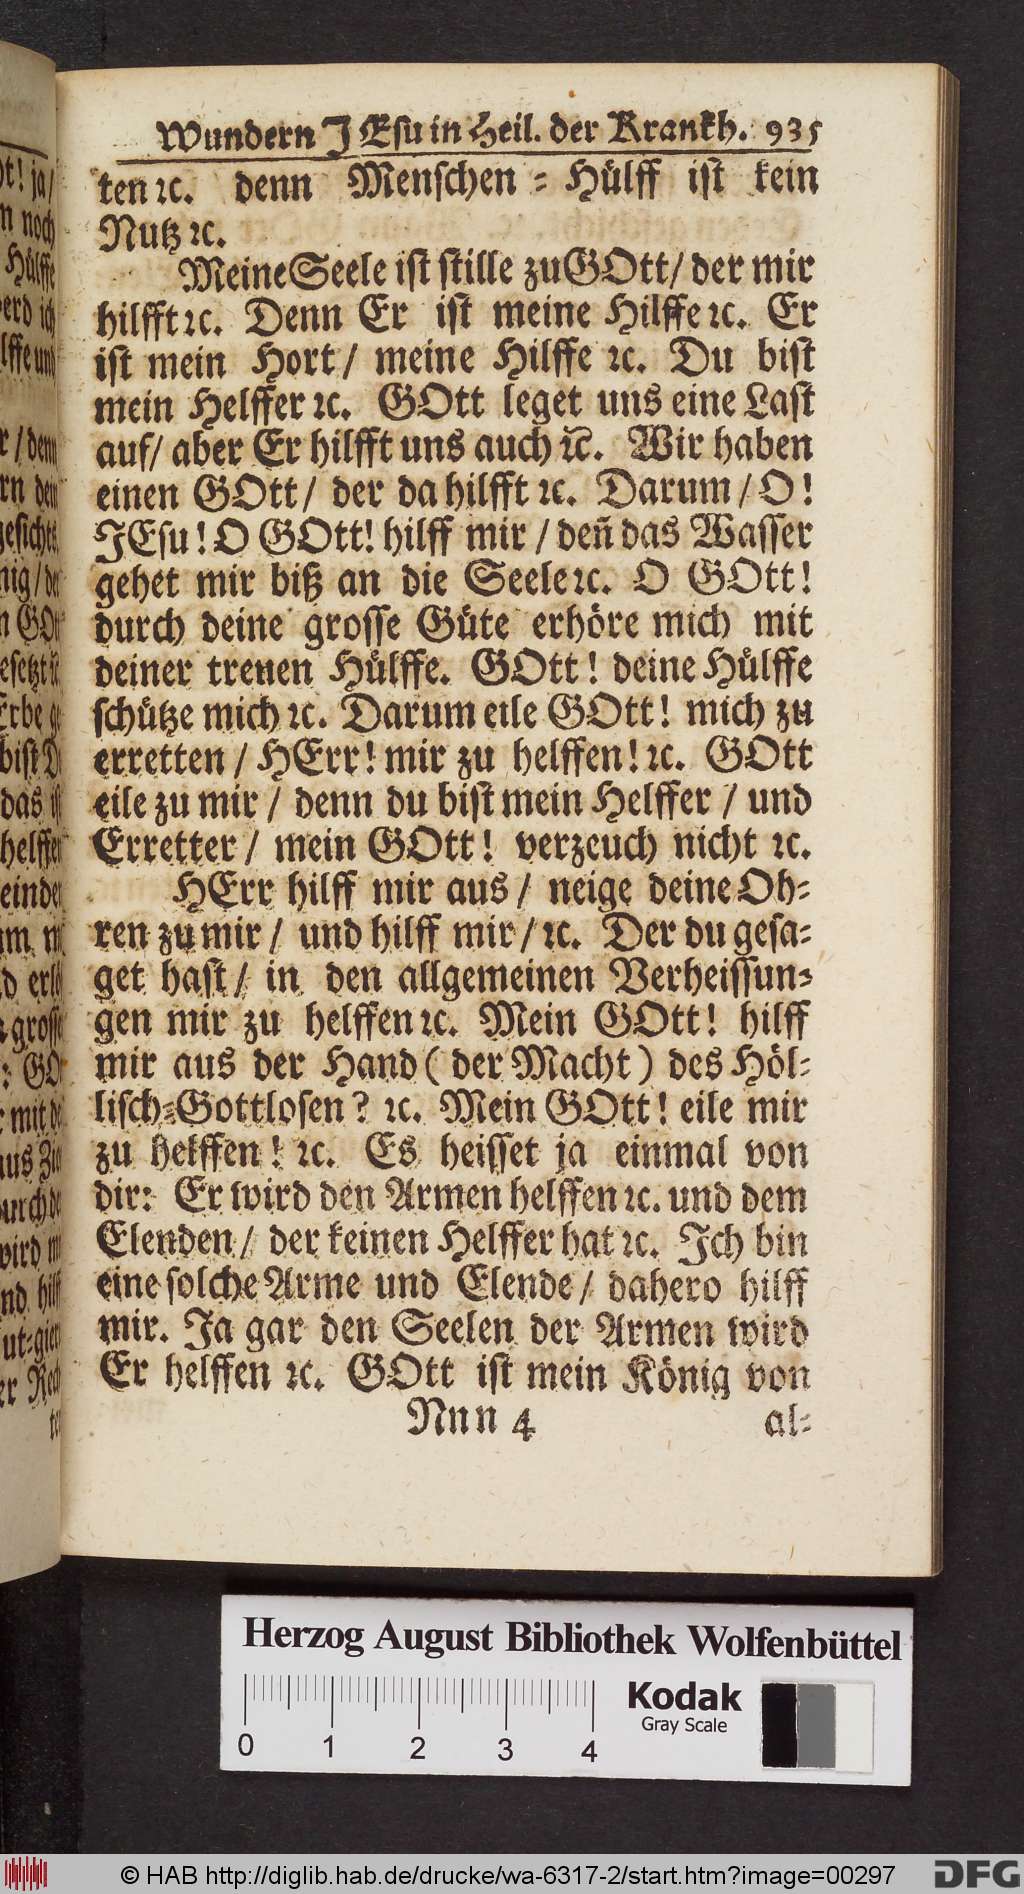 Wundern JEsu in Heil. der Krankh. 935
ten ꝛc. denn Menschen = Hülff ist kein
Nutz ꝛc.
Meine Seele ist stille zu GOtt/ der mir
hilfft ꝛc. Denn Er ist meine Hilffe ꝛc. Er
ist mein Hort / meine Hilffe ꝛc. Du bist
mein Helffer ꝛc. GOtt leget uns eine Last
auf/ aber Er hilfft uns auch ꝛc. Wir haben
einen GOtt / der da hilfft ꝛc. Darum / O!
JEsu! O GOtt! hilff mir / deñ das Wasser
gehet mir biß an die Seele ꝛc. O GOtt!
durch deine grosse Güte erhöre mich mit
deiner treuen Hülffe. GOtt! deine Hülffe
schütze mich ꝛc. Darum eile GOtt! mich zu
erretten / HErr! mir zu helffen! ꝛc. GOtt
eile zu mir / denn du bist mein Helffer / und
Erretter / mein GOtt! verzeuch nicht ꝛc.
HErr hilff mir aus / neige deine Oh=
ren zu mir / und hilff mir / ꝛc. Der du gesa=
get hast / in den allgemeinen Verheissun=
gen mir zu helffen ꝛc. Mein GOtt! hilff
mir aus der Hand ( der Macht ) des Höl=
lisch=Gottlosen? ꝛc. Mein GOtt! eile mir
zu helffen! ꝛc. Es heisset ja einmal von
dir: Er wird den Armen helffen ꝛc. und dem
Elenden / der keinen Helffer hat ꝛc. Ich bin
eine solche Arme und Elende / dahero hilff
mir. Ja gar den Seelen der Armen wird
Er helffen ꝛc. GOtt ist mein König von
Nnn 4 al=
Herzog August Bibliothek Wolfenbüttel
Kodak
Gray Scale
0 1 2 3 4
© HAB http://diglib.hab.de/drucke/wa-6317-2/start.htm?image=00297
DFG